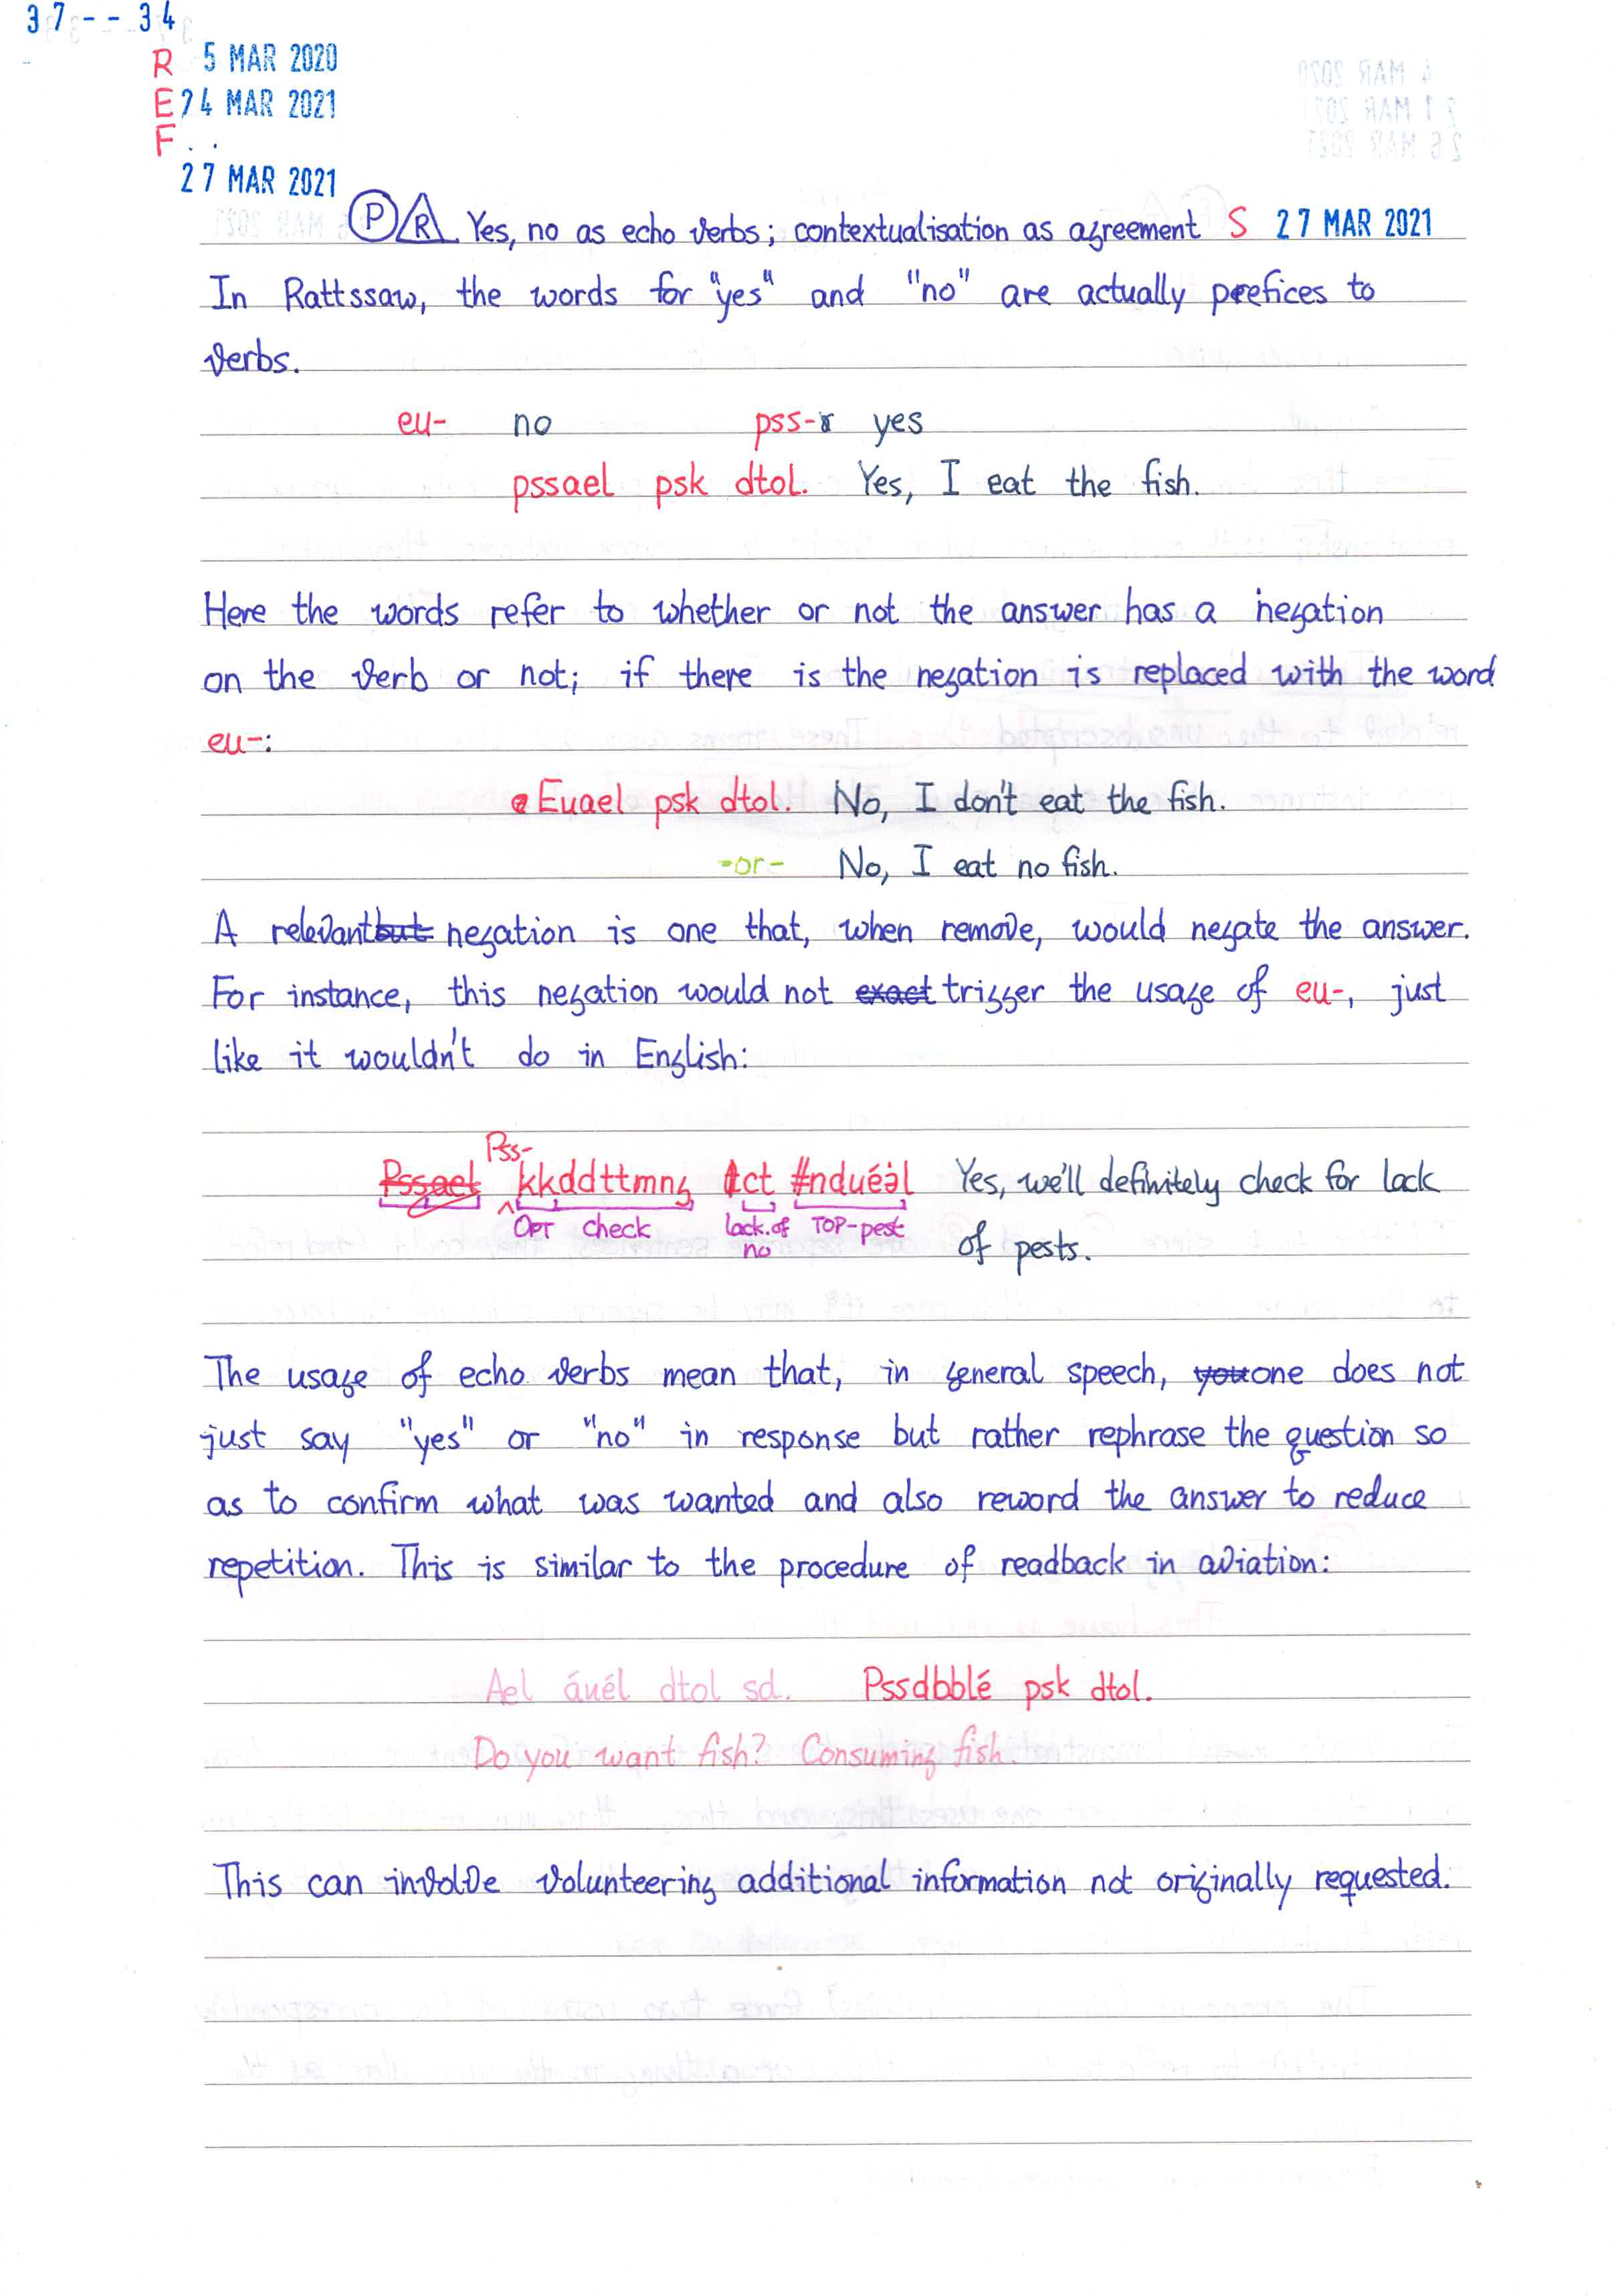 37--34
R 5 MAR 2020
E 24 MAR 2021
F . .
27 MAR 2021
P R Yes, no as echo verbs; contextualisation as agreement S 27 MAR 2021
In Rattssaw, the words for "yes" and "no" are actually prefices to
verbs.
eu- no pss- yes
pssael psk dtol. Yes, I eat the fish.
Here the words refer to whether or not the answer has a negation
on the verb or not; if there is the negation is replaced with the word
eu-:
Euael psk dtol. No, I don't eat the fish.
-or- No, I eat no fish.
A relevant but negation is one that, when remove, would negate the answer.
For instance, this negation would not exact trigger the usage of eu-, just
like it wouldn't do in English:
Pss-
Pssael kkddttmng ct #nduéàl Yes, we'll definitely check for lack
OPT check lack.of TOP-pest
no
of pests.
The usage of echo verbs mean that, in general speech, you one does not
just say "yes" or "no" in response but rather rephrase the question so
as to confirm what was wanted and also reword the answer to reduce
repetition. This is similar to the procedure of readback in aviation:
Ael áuél dtol sd. Pssdbblé psk dtol.
Do you want fish? Consuming fish.
This can involve volunteering additional information not originally requested.